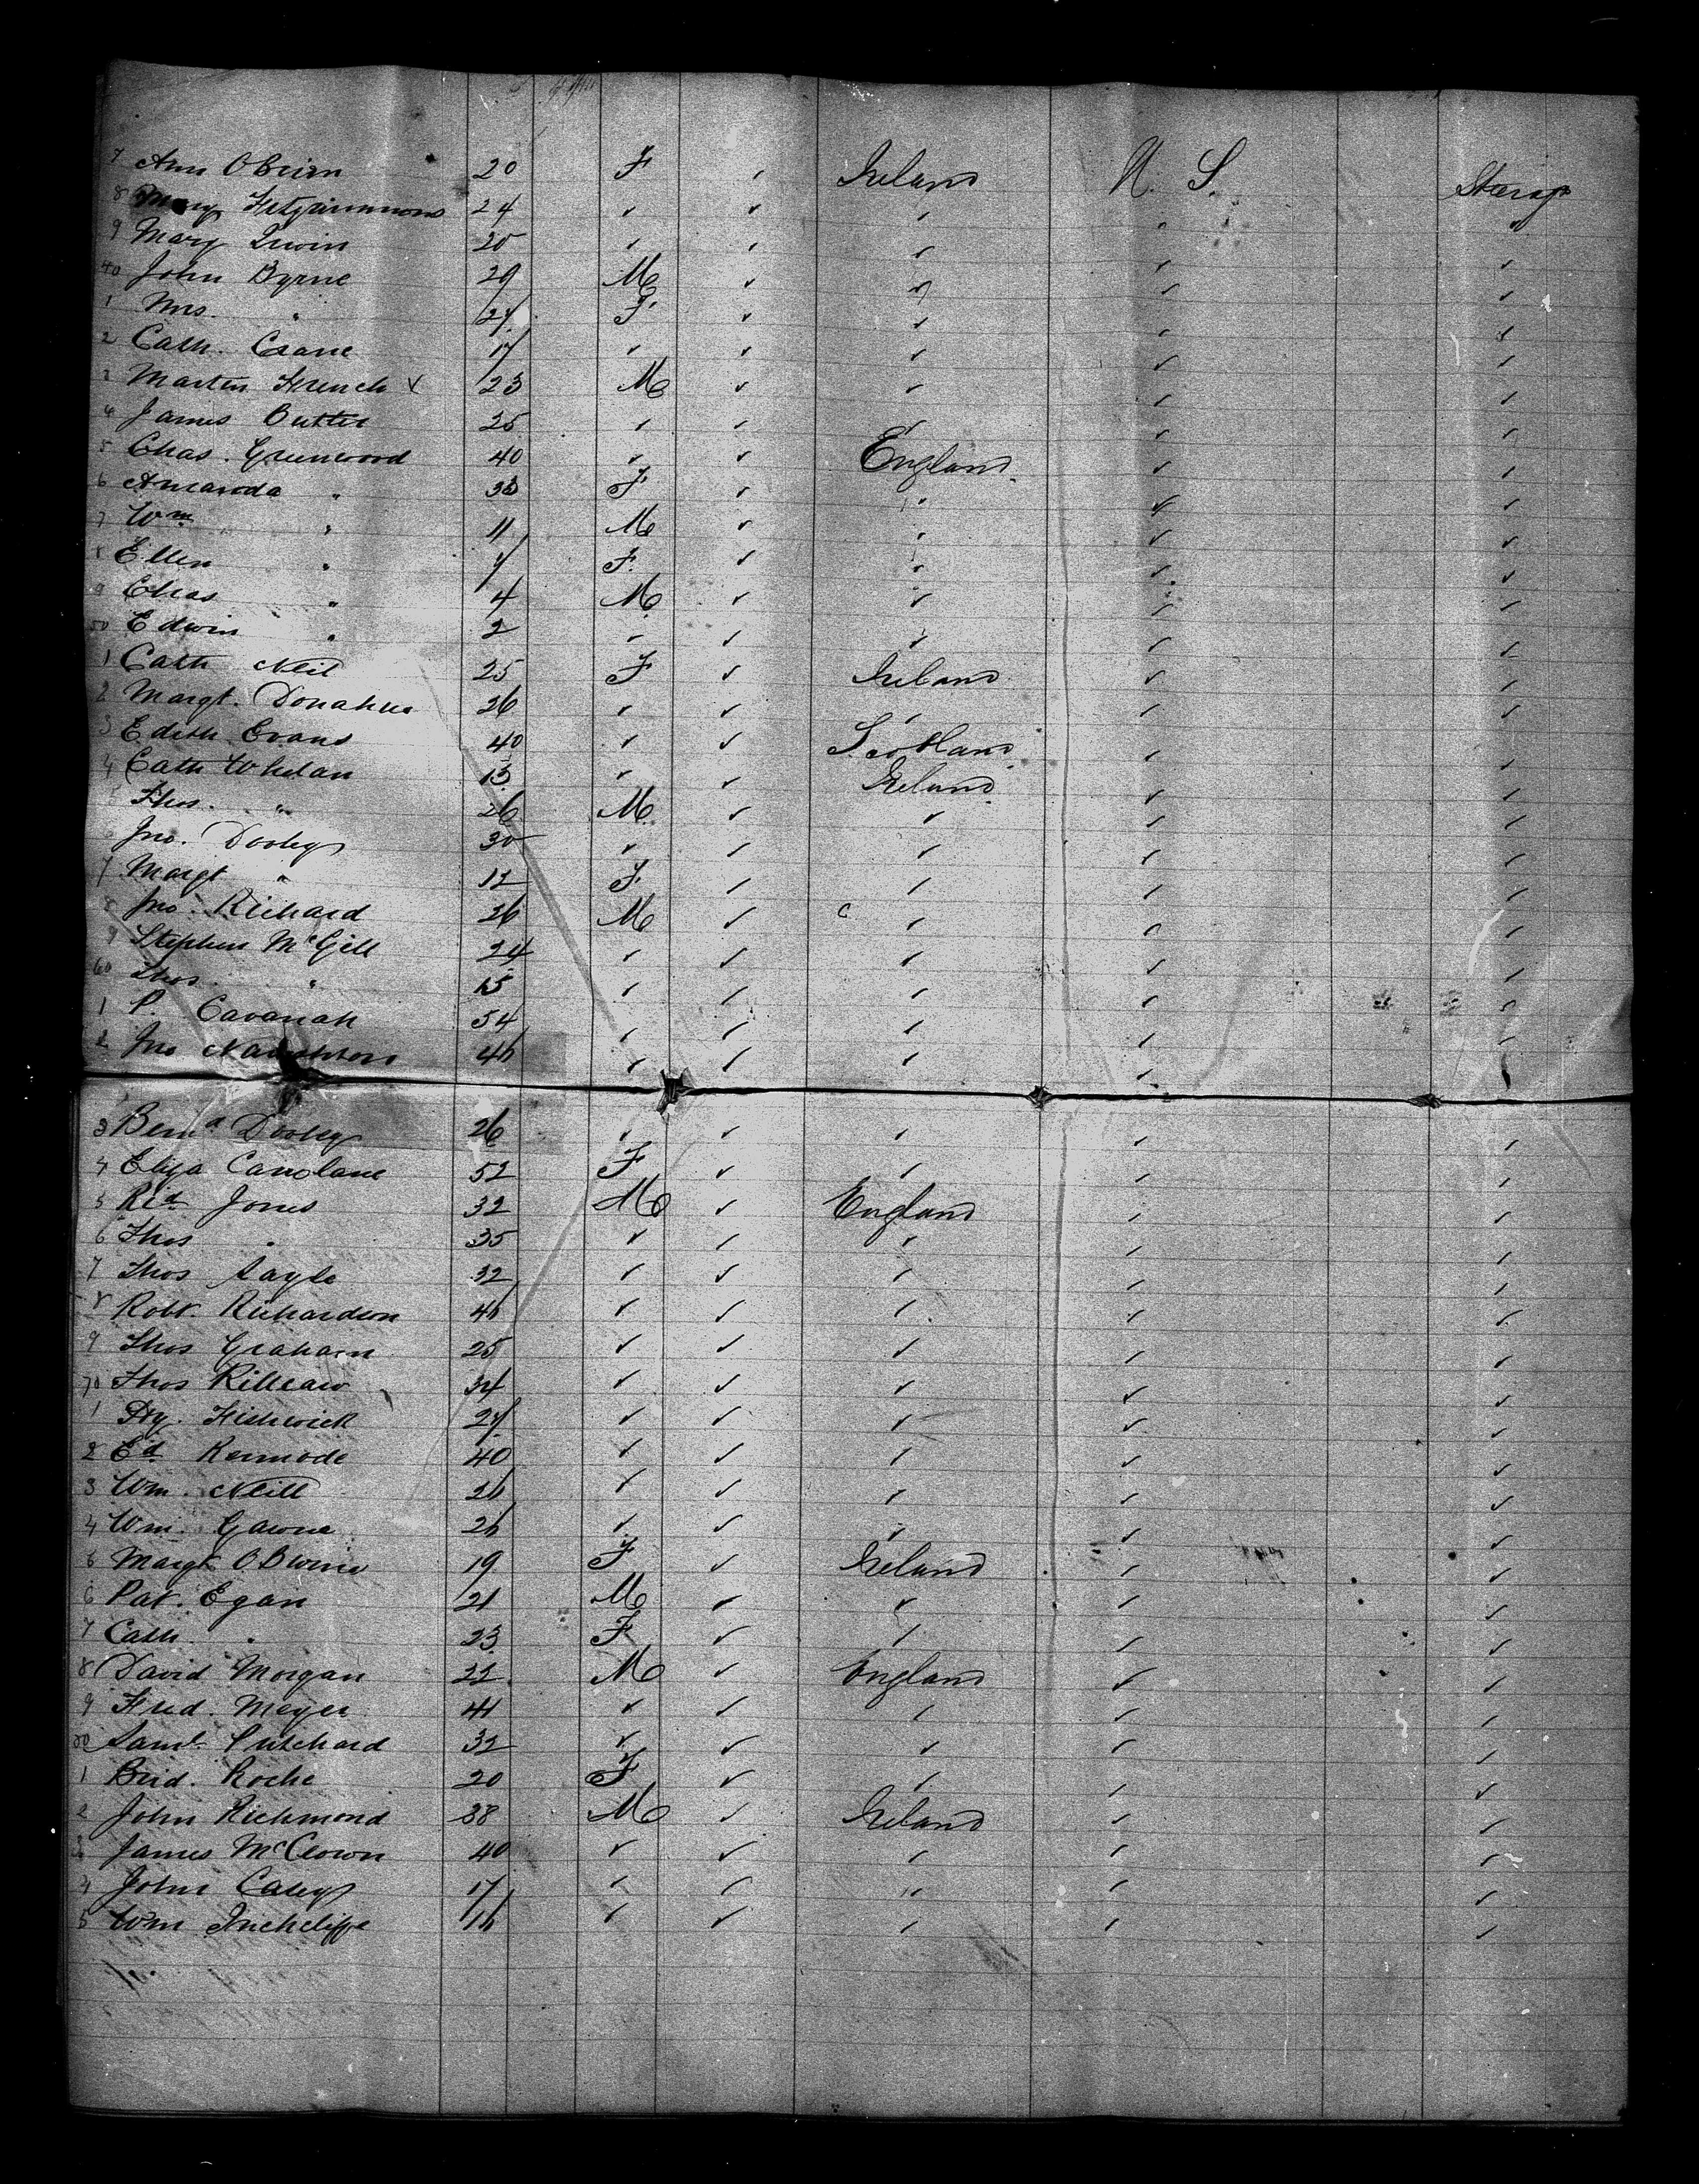 7 Ann OBrien 20 F ✓ Ireland U. S. Steerage
8 Mary Fitzsimmons 24 ✓ ✓ ✓ ✓ ✓
9 Mary Irwin 20 ✓ ✓ ✓ ✓ ✓
40 John Byrne 29 M ✓ ✓ ✓ ✓
1 Mrs. " 27 F ✓ ✓ ✓ ✓
2 Cath. Crane 17 ✓ ✓ ✓ ✓ ✓
3 Martin French x 23 M ✓ ✓ ✓ ✓
4 James Butler 25 ✓ ✓ ✓ ✓ ✓
5 Chas. Greenwood 40 ✓ ✓ England ✓ ✓
6 Amanda " 33 F ✓ " ✓ ✓
7 Wm " 11 M ✓ " ✓ ✓
8 Ellen " 7 F ✓ " ✓ ✓
9 Chas " 4 M ✓ ✓ ✓ ✓
50 Edwin " 2 ✓ ✓ ✓ ✓ ✓
1 Cath Neil 25 F ✓ Ireland ✓ ✓
2 Margt. Donahue 26 ✓ ✓ ✓ ✓ ✓
3 Edith Evans 40 ✓ ✓ Scotland ✓ ✓
4 Cath Whelan 13 ✓ ✓ Ireland ✓ ✓
5 Thos. " 26 M ✓ ✓ ✓ ✓
6 Jno. Dooley 30 ✓ ✓ ✓ ✓ ✓
7 Margt " 12 F ✓ ✓ ✓ ✓
8 Jno. Richard 26 M ✓ ✓ ✓ ✓
9 Stephen McGill 24 ✓ ✓ ✓ ✓ ✓
60 Thos. " 15 ✓ ✓ ✓ ✓ ✓
1 P. Cavanah 54 ✓ ✓ ✓ ✓ ✓
2 Jno Naughton 46 ✓ ✓ ✓ ✓
3 Bernd Dooley 26 ✓ ✓ ✓ ✓ ✓
4 Eliza Carrolane 52 F ✓ ✓ ✓ ✓
5 Rid Jones 32 M ✓ England ✓ ✓
6 Thos " 35 ✓ ✓ ✓ ✓ ✓
7 Thos Sayle 32 ✓ ✓ ✓ ✓ ✓
8 Robt. Richardson 46 ✓ ✓ ✓ ✓ ✓
9 Thos Graham 25 ✓ ✓ ✓ ✓ ✓
70 Thos 34 ✓ ✓ ✓ ✓ ✓
1 Hy. Fishwick 27 ✓ ✓ ✓ ✓ ✓
2 Ed Kermode 40 ✓ ✓ ✓ ✓ ✓
3 Wm. Neill 26 ✓ ✓ ✓ ✓ ✓
4 Wm. Gawne 26 ✓ ✓ ✓ ✓ ✓
5 Margt 19 F ✓ Ireland ✓ ✓
6 Pat. Egan 21 M ✓ ✓ ✓ ✓
7 Cath. " 23 F ✓ ✓ ✓ ✓
8 David Morgan 22 M ✓ England ✓ ✓
9 Fred. Meyer 41 ✓ ✓ ✓ ✓ ✓
80 Saml. Pritchard 32 ✓ ✓ ✓ ✓ ✓
1 Brid. Roche 20 F ✓ ✓ ✓ ✓
2 John Richmond 38 M ✓ Ireland ✓ ✓
3 James McCrown 40 ✓ ✓ ✓ ✓ ✓
4 John Casey 17 ✓ ✓ " ✓ ✓
5 Wm Inchcliffe 16 ✓ ✓ ✓ ✓ ✓